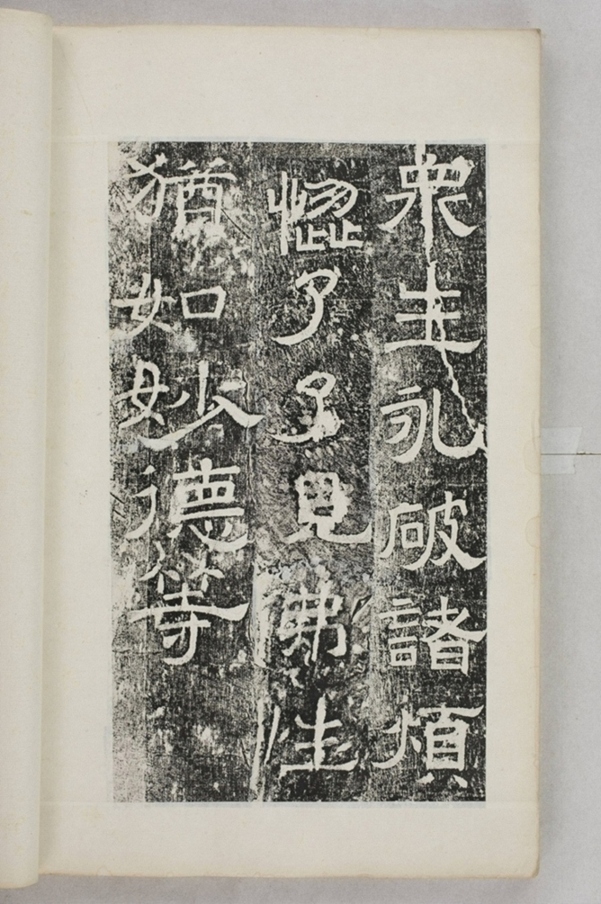 衆生永破諸煩
惱了了見佛性
猶如妙德等